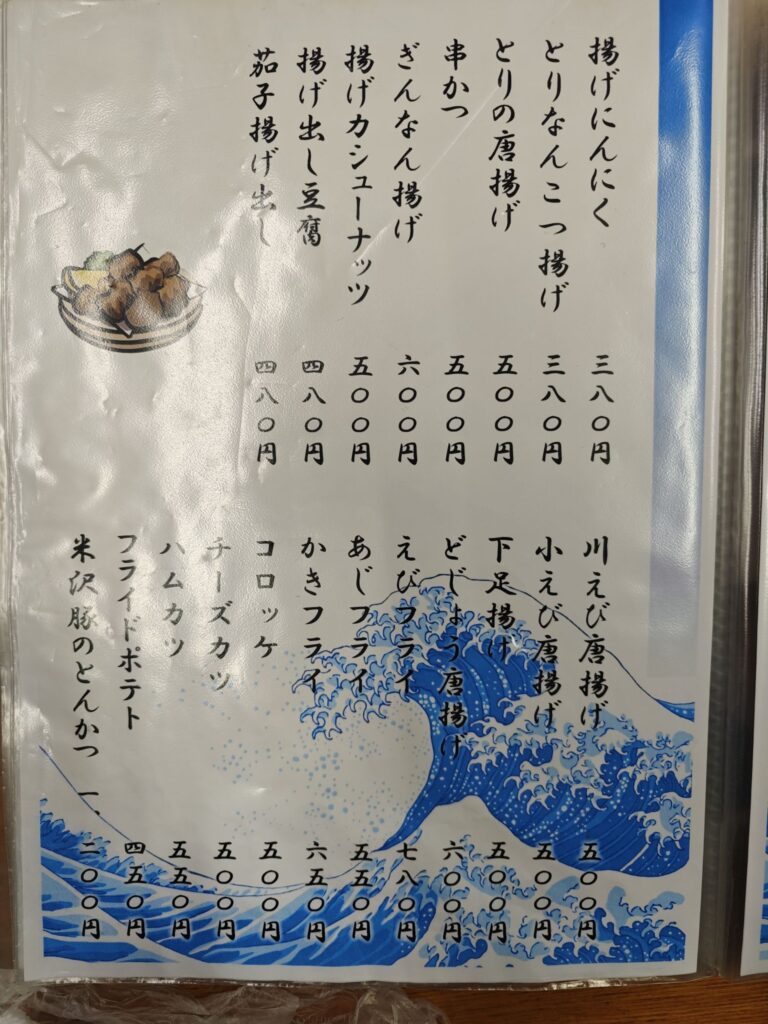 揚げにんにく 三八〇円
とりなんこつ揚げ 三八〇円
とりの唐揚げ 五〇〇円
串かつ 五〇〇円
ぎんなん揚げ 六〇〇円
揚げカシューナッツ 五〇〇円
揚げ出し豆腐 四八〇円
茄子揚げ出し 四八〇円
川えび唐揚げ 五〇〇円
小えび唐揚げ 五〇〇円
下足揚げ 五〇〇円
どじょう唐揚げ 六〇〇円
えびフライ 七八〇円
あじフライ 五五〇円
かきフライ 六五〇円
コロッケ 五〇〇円
チーズカツ 五〇〇円
ハムカツ 五五〇円
フライドポテト 四五〇円
米沢豚のとんかつ 一、二〇〇円